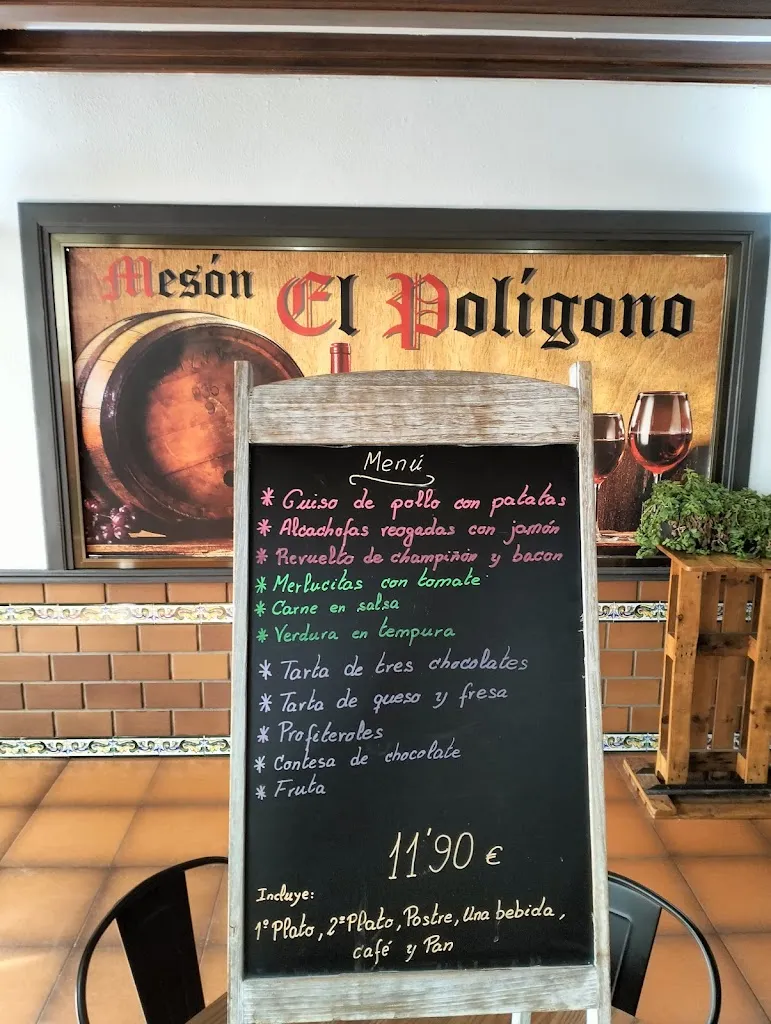 Mesón El Polígono
Menú
* Guiso de pollo con patatas
* Alcachofas reogadas con jamón
* Revuelto de champiñón y bacon
* Merlucitas con tomate
* Carne en salsa
* Verdura en tempura
* Tarta de tres chocolates
* Tarta de queso y fresa
* Profiteroles
* Contesa de chocolate
* Fruta
11'90 €
Incluye:
1º Plato, 2º Plato, Postre, Una bebida,
café y Pan